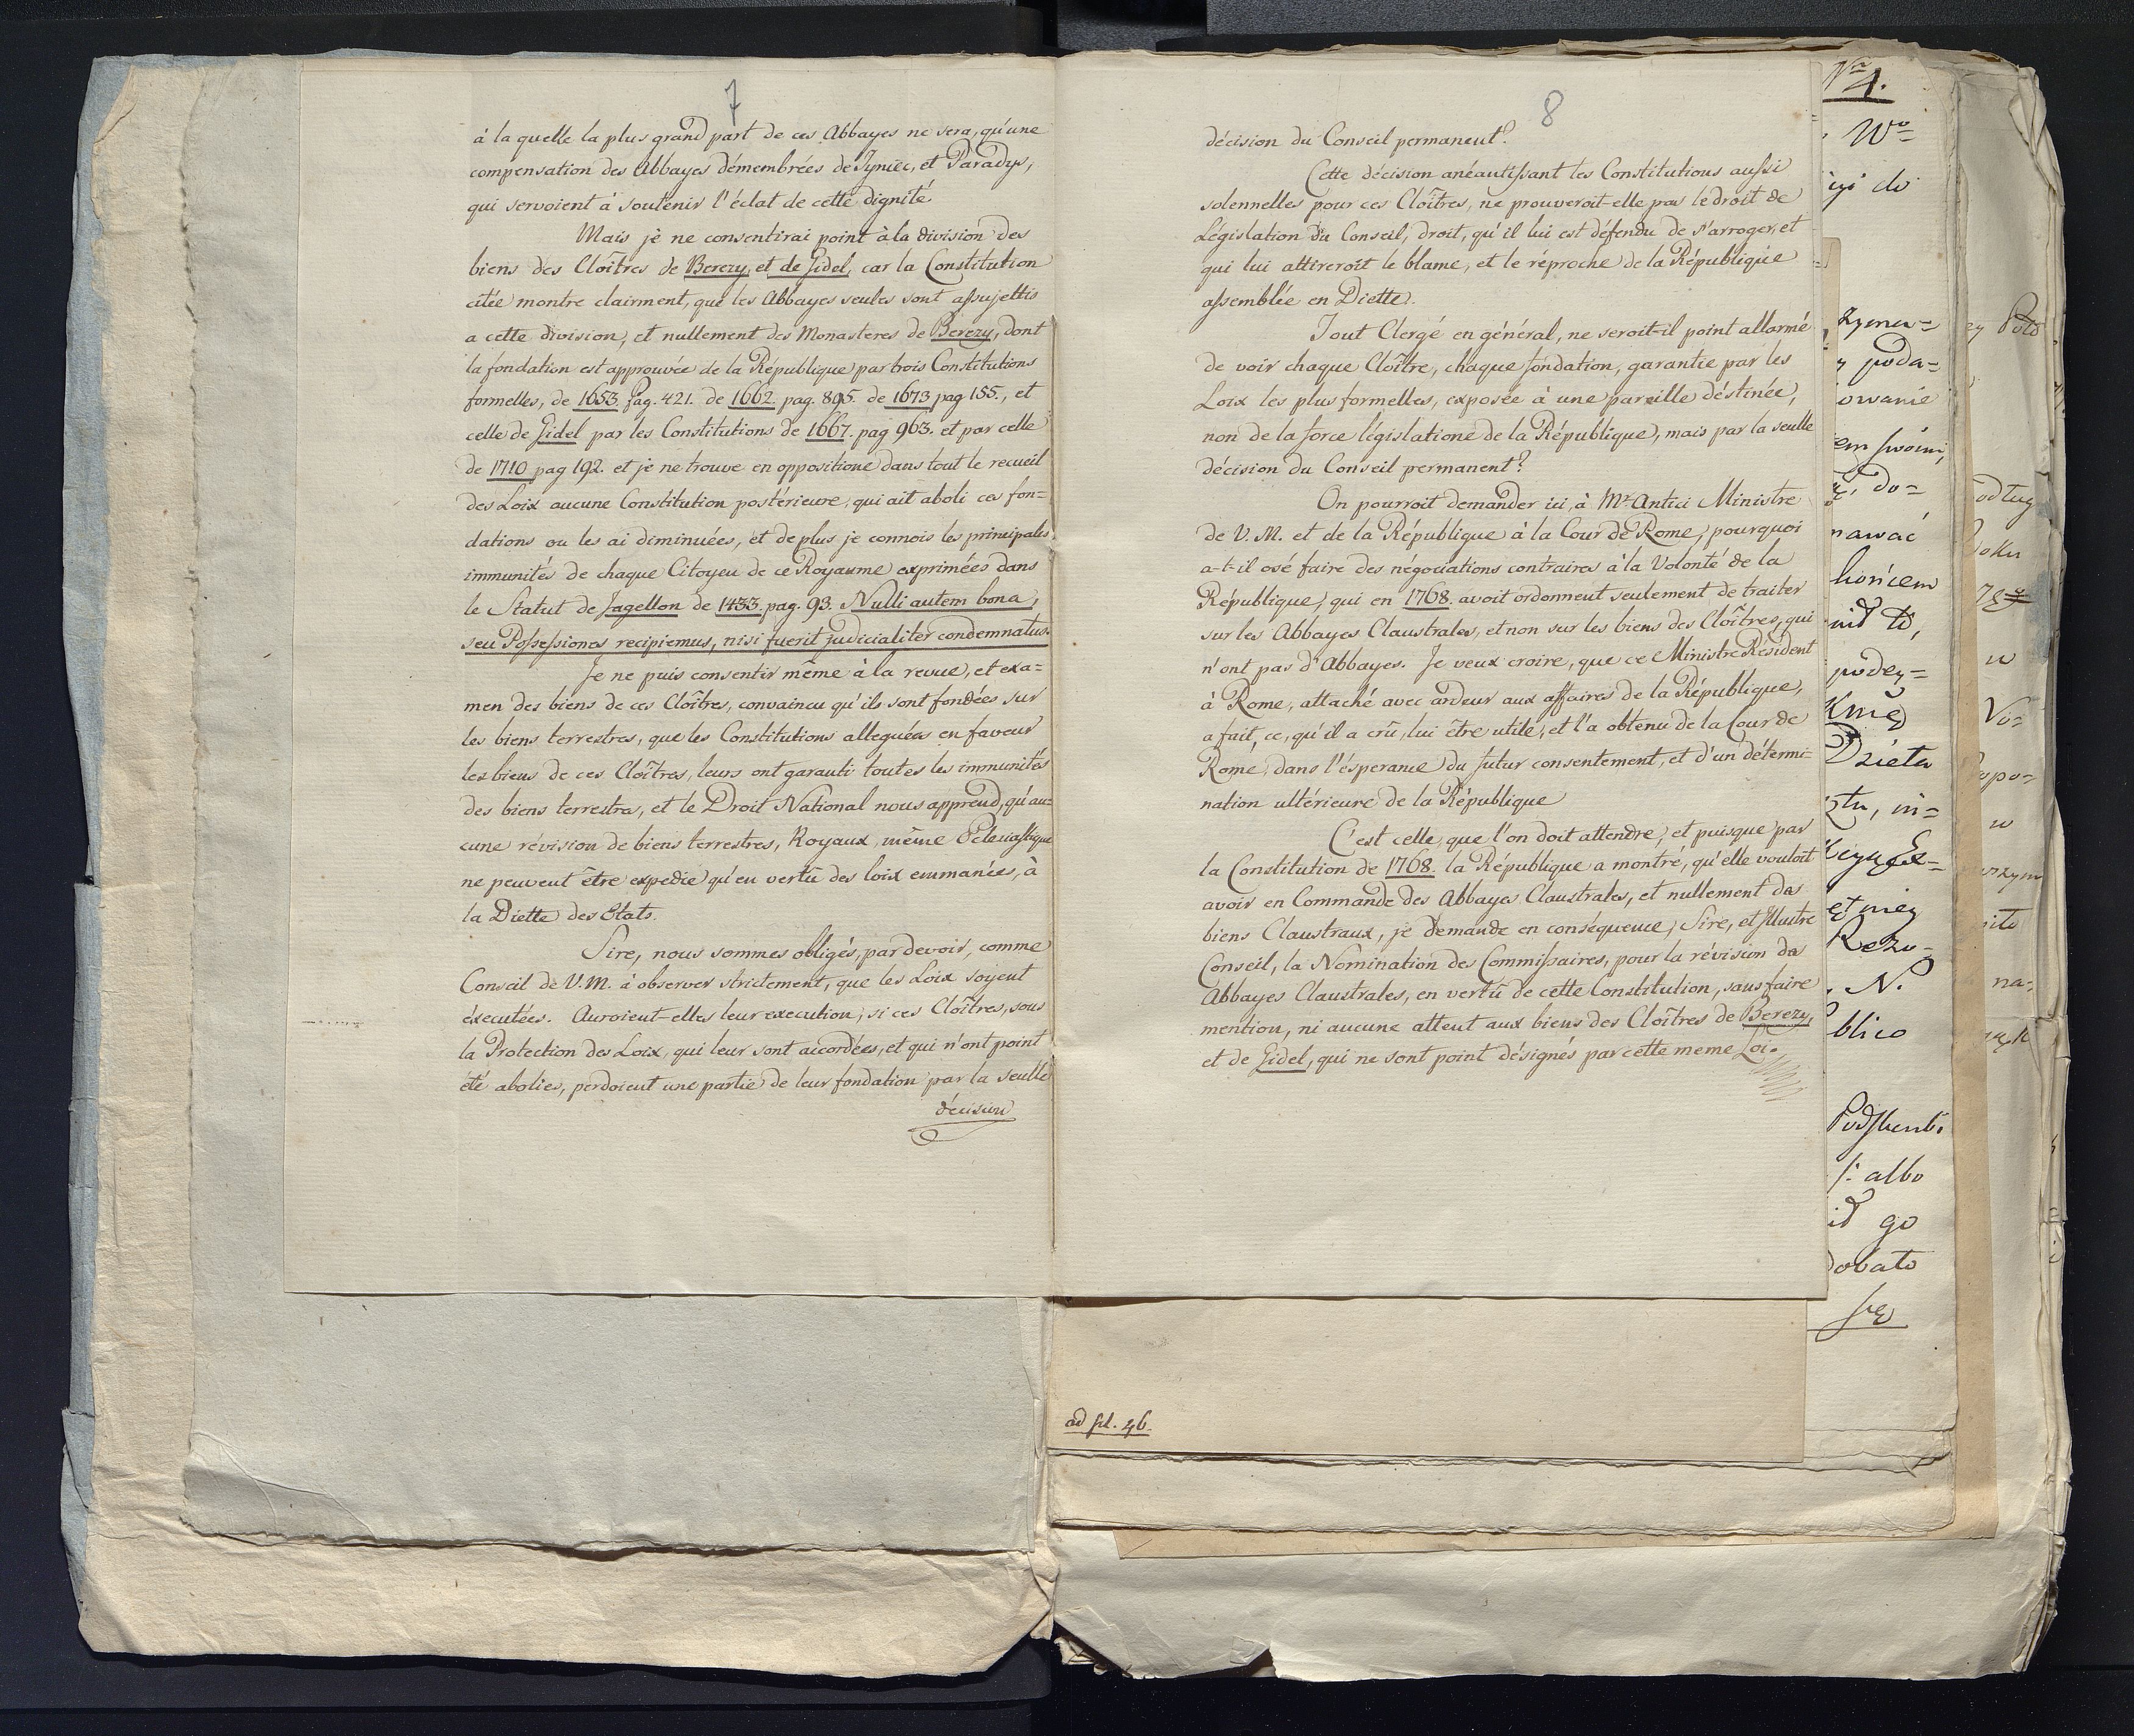 7
à la quelle la plus grand part de ces Abbayes ne sera, qu'une
compensation des Abbayes démembrées de Tyniec, et Paradys,
qui servoient à soutenir l'éclat de cette dignité.
Mais je ne consentirai point à la division des
biens des Cloîtres de Berezy, et de Gidel, car la Constitution
citée montre clairment, que les Abbayes seules sont assujettis
a cette division, et nullement des Monasteres de Berezy, dont
la fondation est approuvée de la République par trois Constitutions
formelles, de 1653. pag. 421. de 1662. pag. 895. de 1673 pag 155., et
celle de Gidel par les Constitutions de 1667. pag 963. et par celle
de 1710 pag 192. et je ne trouve en oppositione dans tout le recueil
des Loix aucune Constitution postérieure, qui ait aboli ces fon=
dations ou les ai diminuées, et de plus je connois les principales
immunités de chaque Citoyen de ce Royaume exprimées dans
le Statut de Jagellon de 1433. pag. 93. Nulli autem bona,
seu Possessiones recipiemus, nisi fuerit judicialiter condemnatus.
Je ne puis consentir même à la revue, et exa=
men des biens de ces Cloîtres, convaincu qu'ils sont fondées sur
les biens terrestres, que les Constitutions alleguées en faveur
les biens de ces Cloîtres, leurs ont garanti toutes les immunités
des biens terrestres, et le Droit National nous apprend, qu'au=
cune révision de biens terrestres, Royaux, même Eclesiastique
ne peuvent être expedie qu'en vertû des loix emmanées, à
la Diette des Etats.
Sire, nous sommes obligés, par devoir, comme
Conseil de V. M. à observer strictement, que les Loix soyent
éxecutées. Auroient-elles leur execution, si ces Cloîtres, sous
la Protection des Loix, qui leur sont accordées, et qui n'ont point
été abolies, perdoient une partie de leur fondation par la seulle
décision
8
décision du Conseil permanent?
Cette décision anéantissant les Constitutions aussi
solennelles pour ces Cloîtres, ne prouveroit-elle pas le droit de
Législation du Conseil, droit, qu'il lui est défendu de s'arroger, et
qui lui attireroit le blame, et le réproche de la République
assemblée en Diette.
Tout Clergé en général, ne seroit-il point allarmé
de voir chaque Cloître, chaque fondation, garantie par les
Loix les plus formelles, exposée à une pareille déstinée,
non de la force législatione de la République, mais par la seulle
décision du Conseil permanent?
On pourroit demander ici, à Mr. Antici Ministre
de V. M. et de la République à la Cour de Rome, pourquoi
a-t-il osé faire des négociations contraires à la Volonté de la
République, qui en 1768. avoit ordonnent seulement de traiter
sur les Abbayes Claustrales, et non sur les biens des Cloîtres, qui
n'ont pas d'Abbayes. Je veux croire, que ce Ministre Résident
à Rome, attaché avec ardeur aux affaires de la République,
a fait, ce, qu'il a crû, lui être utile, et l'a obtenu de la Cour de
Rome, dans l'ésperance du futur consentement, et d'un détermi=
nation ultérieure de la République
C'est celle, que l'on doit attendre, et puisque par
la Constitution de 1768. la République a montré, qu'elle vouloit
avoir en Commande des Abbayes Claustrales, et nullement des
biens Claustraux, je demande en conséquence, Sire, et Illustre
Conseil, la Nomination des Commissaires, pour la révision des
Abbayes Claustrales, en vertû de cette Constitution, sans faire
mention, ni aucune attent aux biens des Cloîtres de Berezy,
et de Gidel, qui ne sont point désignés par cette meme Loi.
ad fil. 46.
Nro 4.
Wo
do
poda=
do=
Dzieta
in=
Rezo=
N.
blico
albo
go
na=